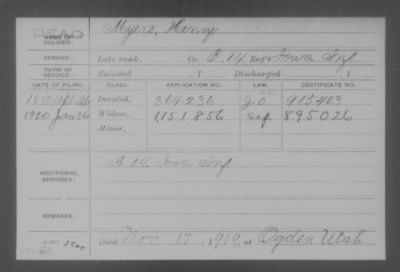 DEAD
NAME OF SOLDIER: Myers, Henry
SERVICE: Late rank, Co. B, 14 Reg't Iowa Inf.
TERM OF SERVICE: Enlisted , 1 Discharged , 1
DATE OF FILING. CLASS. APPLICATION NO. LAW. CERTIFICATE NO.
1880 Apl. 26 Invalid, 364.236 G.O 915403
1920 Jan 26 Widow, 1,151.856 895026
Minor,
ADDITIONAL SERVICES: A. 14 Iowa Inf
REMARKS:
Died Nov 17, 1919, at Ogden Utah